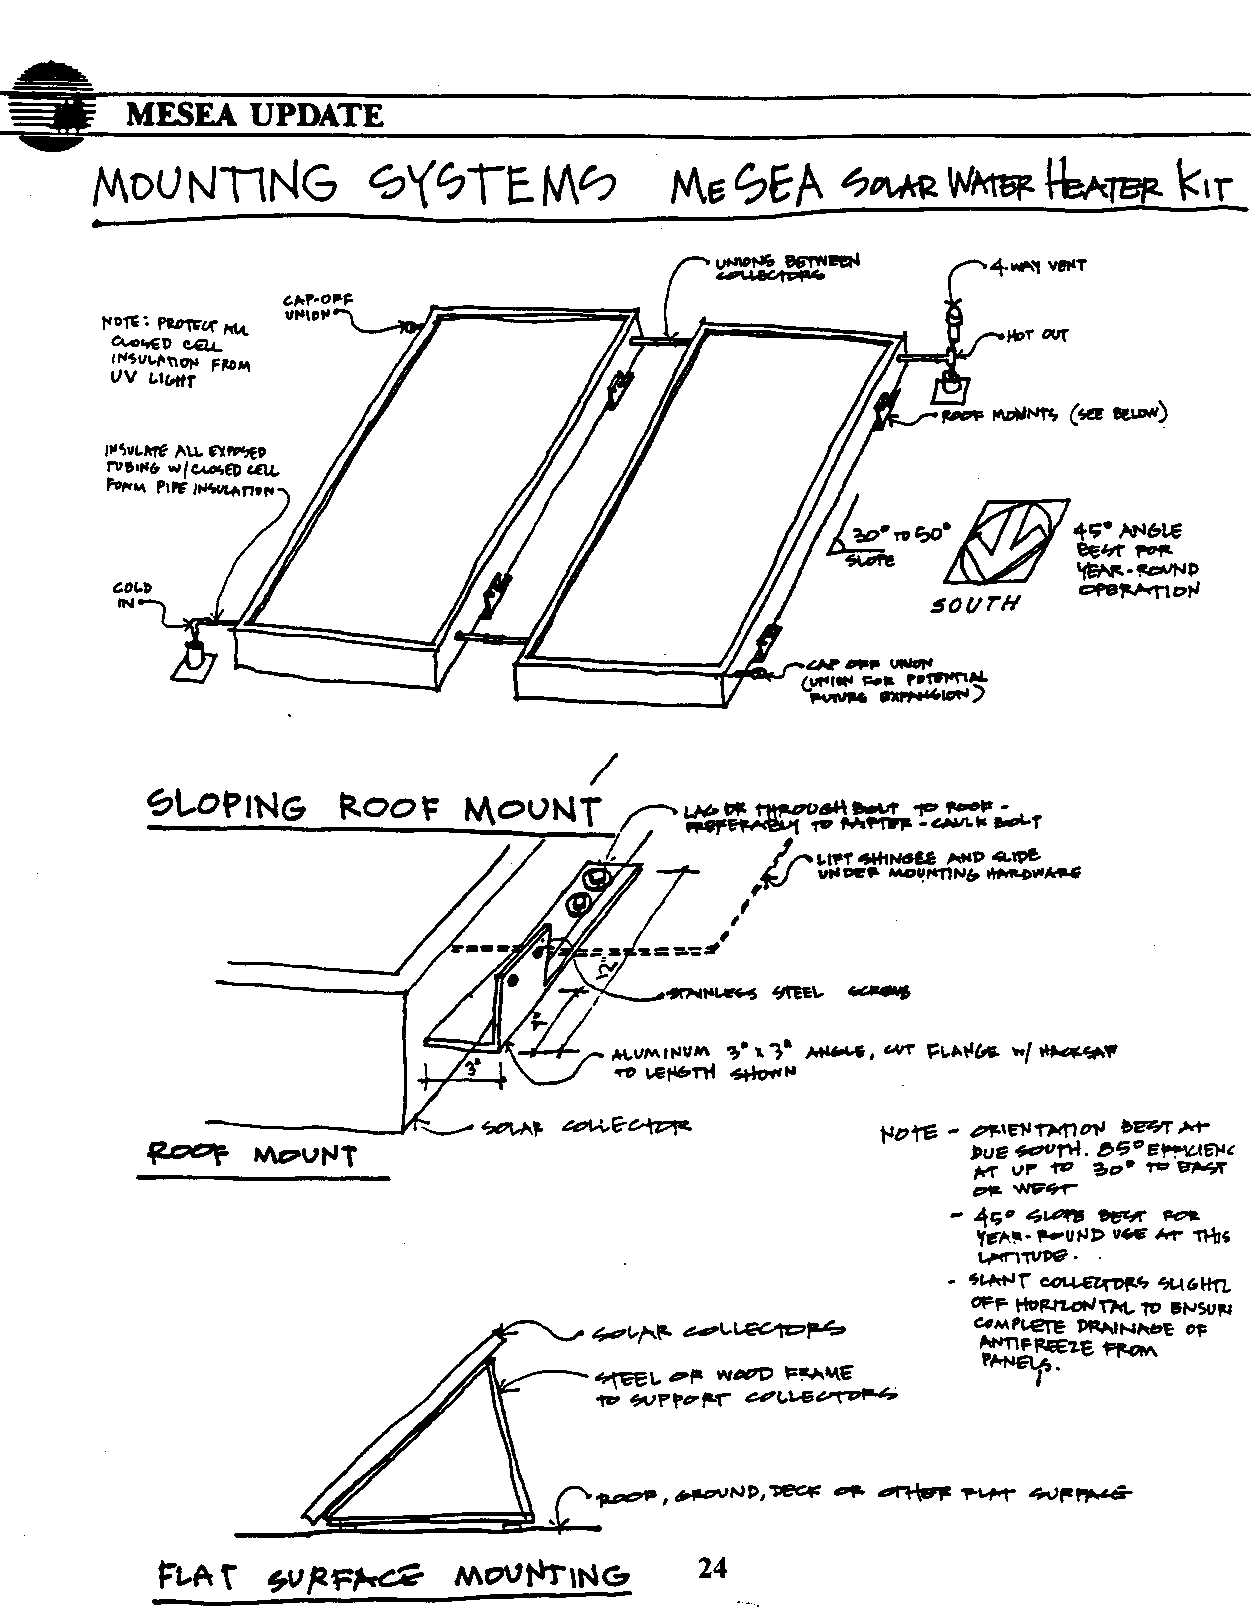 MESEA UPDATE
MOUNTING SYSTEMS MeSEA SOLAR WATER HEATER KIT
UNIONS BETWEEN
COLLECTORS
4-WAY VENT
CAP-OFF
UNION
NOTE: PROTECT ALL
CLOSED CELL
INSULATION FROM
UV LIGHT
HOT OUT
ROOF MOUNTS (SEE BELOW)
INSULATE ALL EXPOSED
TUBING W/CLOSED CELL
FOAM PIPE INSULATION
30° TO 50°
SLOPE
45° ANGLE
BEST FOR
YEAR-ROUND
OPERATION
SOUTH
COLD
IN
CAP OFF UNION
(UNION FOR POTENTIAL
FUTURE EXPANSION)
SLOPING ROOF MOUNT
LAG OR THROUGH BOLT TO ROOF -
PREFERABLY TO RAFTER - CAULK BOLT
LIFT SHINGLE AND SLIDE
UNDER MOUNTING HARDWARE
12"
STAINLESS STEEL SCREWS
3"
ALUMINUM 3" x 3" ANGLE, CUT FLANGE W/ HACKSAW
TO LENGTH SHOWN
SOLAR COLLECTOR
ROOF MOUNT
NOTE - ORIENTATION BEST AT
DUE SOUTH. 85° EFFICIENC
AT UP TO 30° TO EAST
OR WEST
- 45° SLOPE BEST FOR
YEAR-ROUND USE AT THIS
LATITUDE.
- SLANT COLLECTORS SLIGHTL
OFF HORIZONTAL TO ENSUR
COMPLETE DRAINAGE OF
ANTIFREEZE FROM
PANELS.
SOLAR COLLECTORS
STEEL OR WOOD FRAME
TO SUPPORT COLLECTORS
ROOF, GROUND, DECK OR OTHER FLAT SURFACE
FLAT SURFACE MOUNTING
24